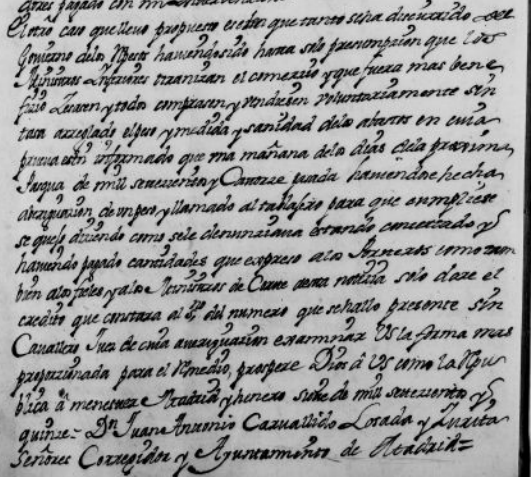 pagado con mi
El otro caso que llevo propuesto es el en que tanto se ha discurrido del
Govierno de los Abastos haviendo sido hasta solo presumpcion que los
Ministros Inferiores tiranizan el comercio y que fuera mas bene
ficio fuesen y todos comprasen y vendiesen voluntariamente sin
tasa arreglado el peso y medida y sanidad de los abastos en cuia
prueva estoi informado que una mañana de los dias de la proxima
Pasqua de mil setecientos y Catorze pasada haviendose hecha
aberiguacion de un peso y llamado al tablagero para que cumpliese
se quejo diziendo como se le denunziava estando concertado y
haviendo pagado cantidades que expreso a los Porteros como tam
bien a los fieles y a los Ministros de Corte de esta notizia solo dare el
credito que constara al del numero que se hallo presente sin
Cavallero Juez de cuia averiguacion examinar Us la forma mas
proporzionada para el remedio, prospere Dios a Us como la Repu
blica a menester Madrid y henero siete de mil setecientos y
quinze = Dn Juan Antonio Carvallido Losada y Zurita
Señores Corregidor y Ayuntamiento de Madrid =